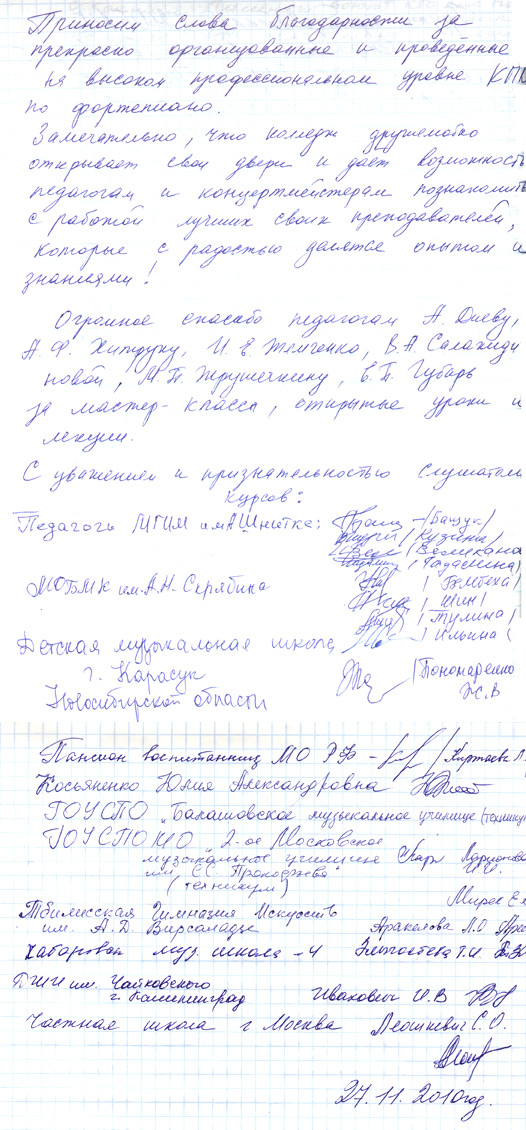 Приносим слова благодарности за
прекрасно организованные и проведённые
на высоком профессиональном уровне КПК
по фортепиано.
Замечательно, что колледж дружелюбно
открывает свои двери и даёт возможность
педагогам и концертмейстерам познакомить
с работой лучших своих преподавателей,
которые с радостью делятся опытом и
знаниями!
Огромное спасибо педагогам А. Диеву,
А. Ф. Хитруку, И. Е. Тличенко, В. А. Салахиди
новой, М. П. Трушечкину, Е. П. Губарь
за мастер-классы, открытые уроки и
лекции.
С уважением и признательностью слушатели
курсов:
Педагоги МГИМ им А Шнитке: /Бащук/
/Кузины/
/Великано
/Гадаскина/
МОБМК им. А. Н. Скрябина
/Шин/
/Тулина/
/Ильина/
Детская музыкальная школа
г. Карасук /Пономаренко
Новосибирской области Ж.В
Пансион воспитанниц МО РФ -
Косьяненко Юлия Александровна
ГОУСПО "Балашовское музыкальное училище (технику
ГОУСПОМО "2-ое Московское
музыкальное училище
им. С.С. Прокофьева"
(техникум)
Тбилисская Гимназия Искусств
им. А. Д. Вирсаладзе Аракелова Л.О
Хабаровск муз. школа - 4
ДШИ им. Чайковского
г. Калининград Ивахович И.В
Частная школа г Москва Леошкевич С.О.
27.11.2010 год.